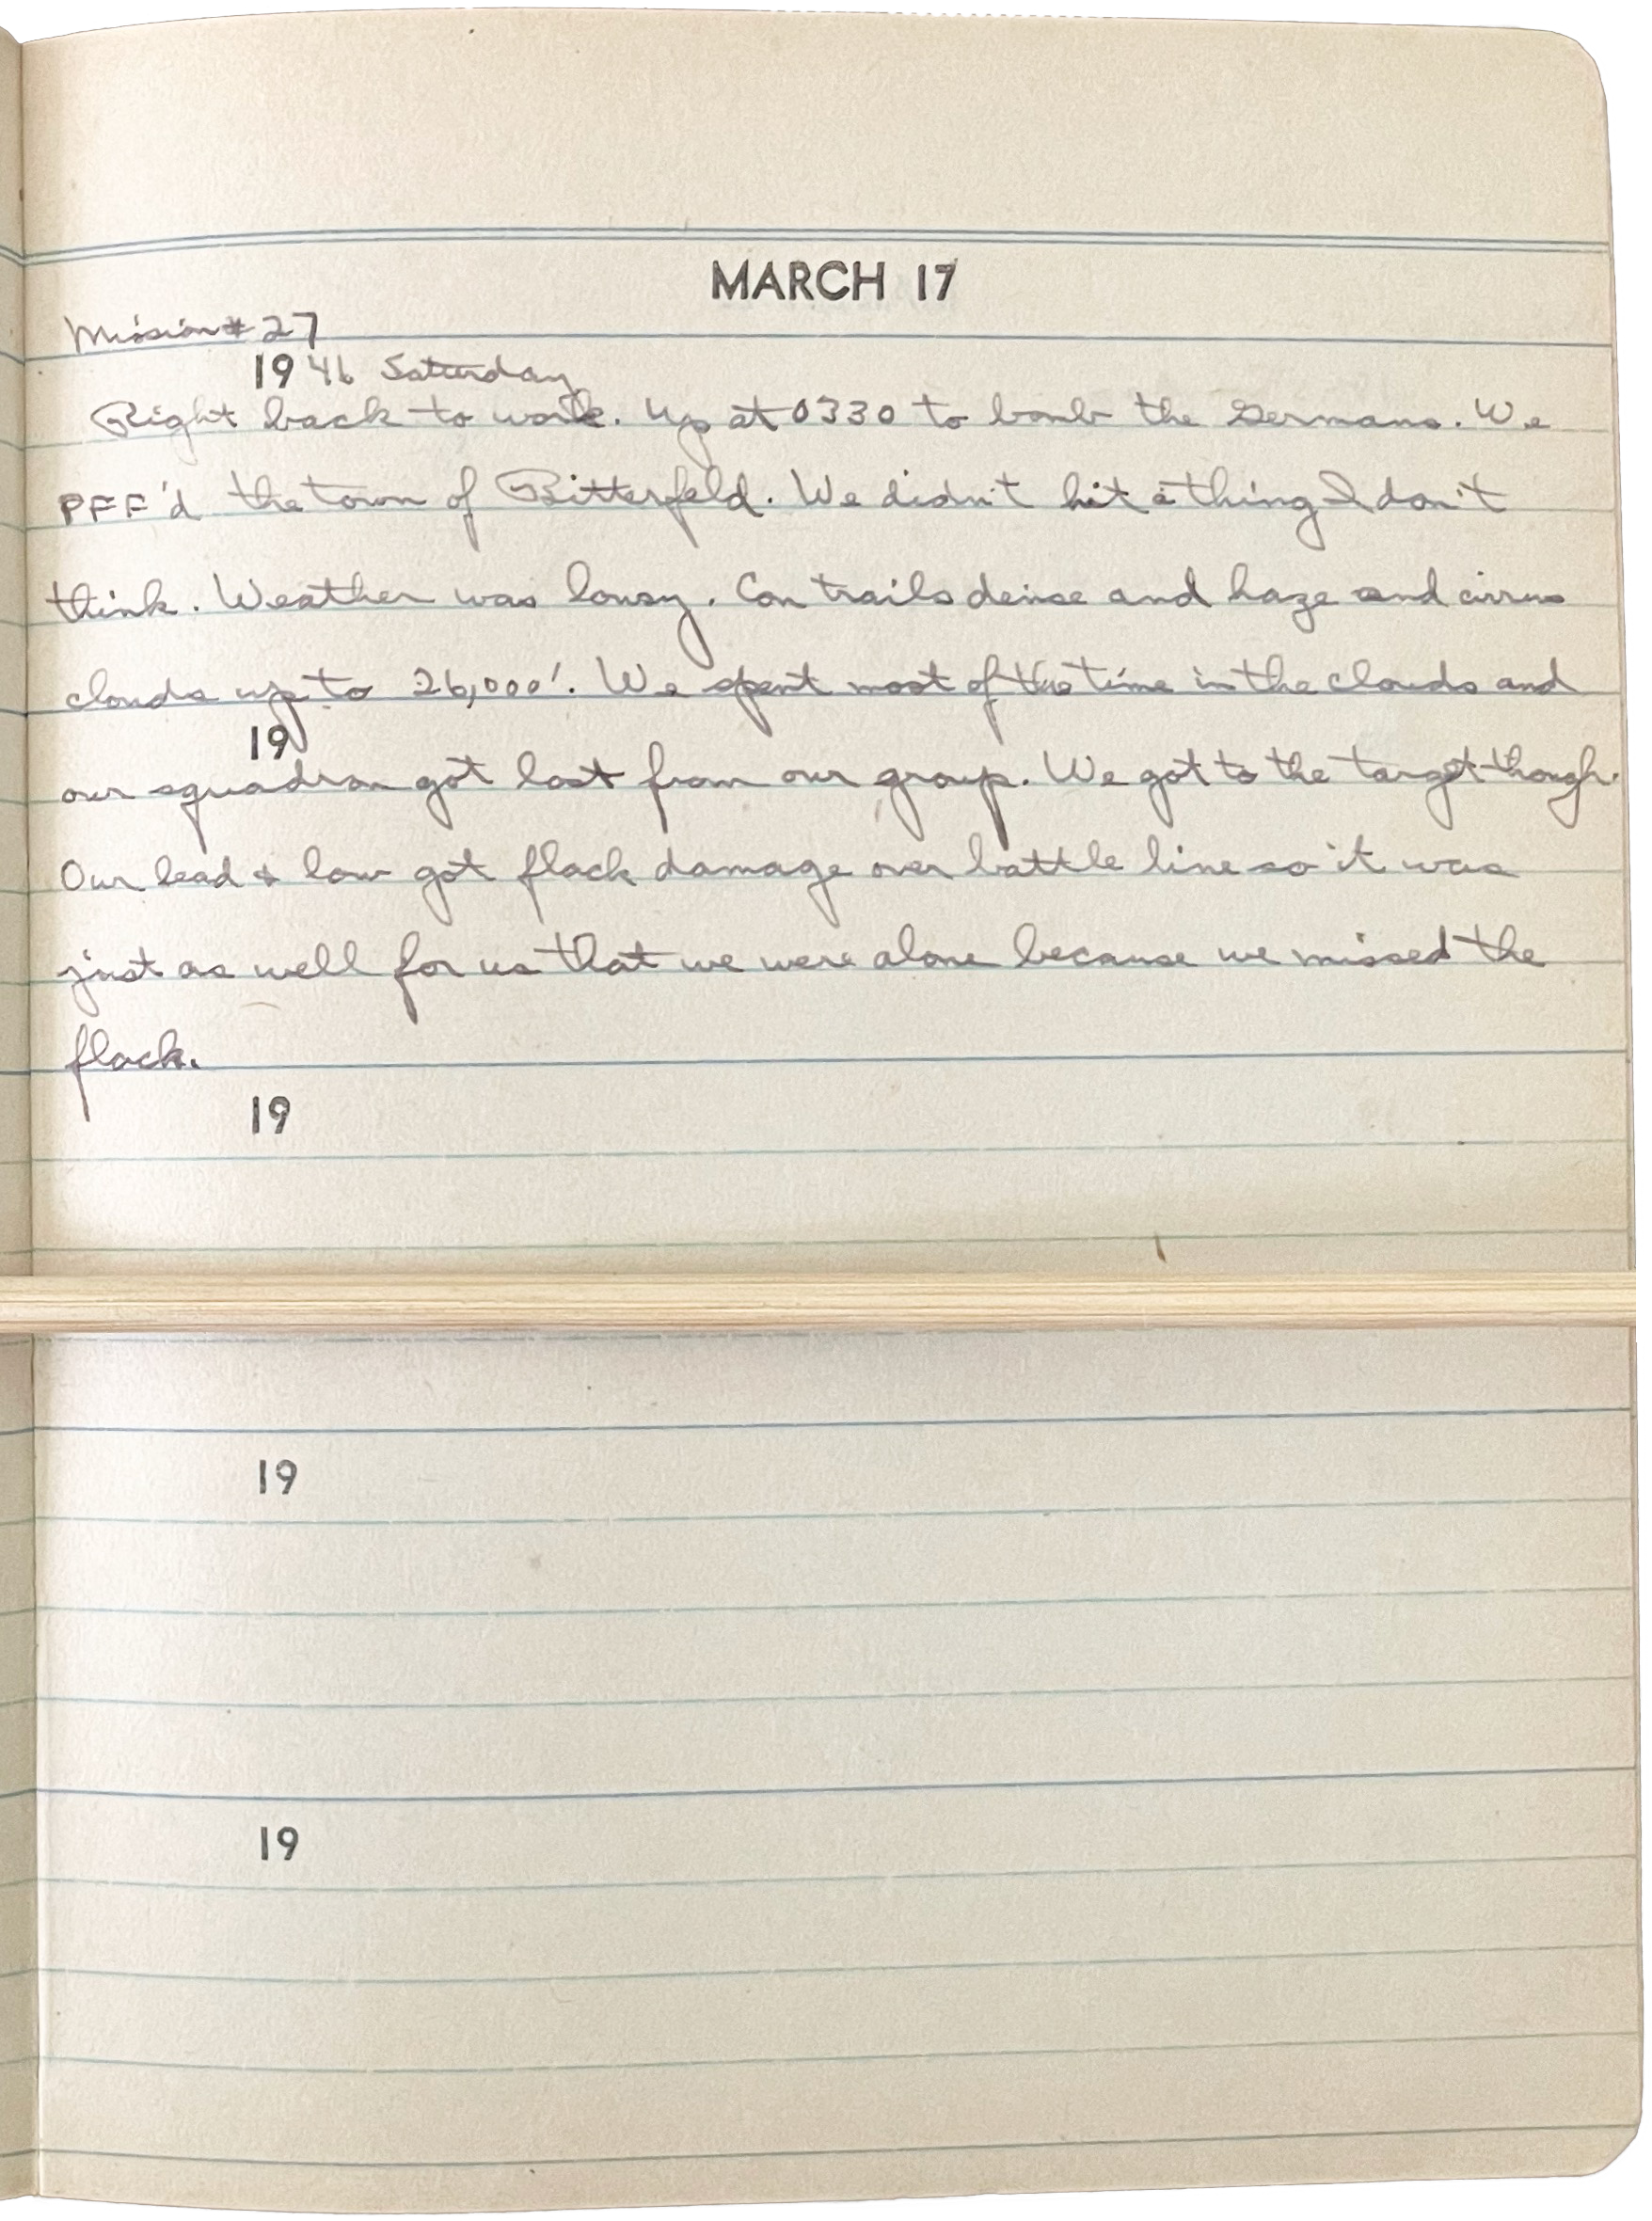 MARCH 17
Mission # 27
19 46 Saturday
Right back to work. Up at 0330 to bomb the Germans. We
PFF'd the town of Bitterfeld. We didn't hit a thing I don't
think. Weather was lousy. Con trails dense and haze and cirrus
clouds up to 26,000'. We spent most of the time in the clouds and
19
our squadron got lost from our group. We got to the target though.
Our lead & low got flack damage over battle line so it was
just as well for us that we were alone because we missed the
flack.
19
19
19